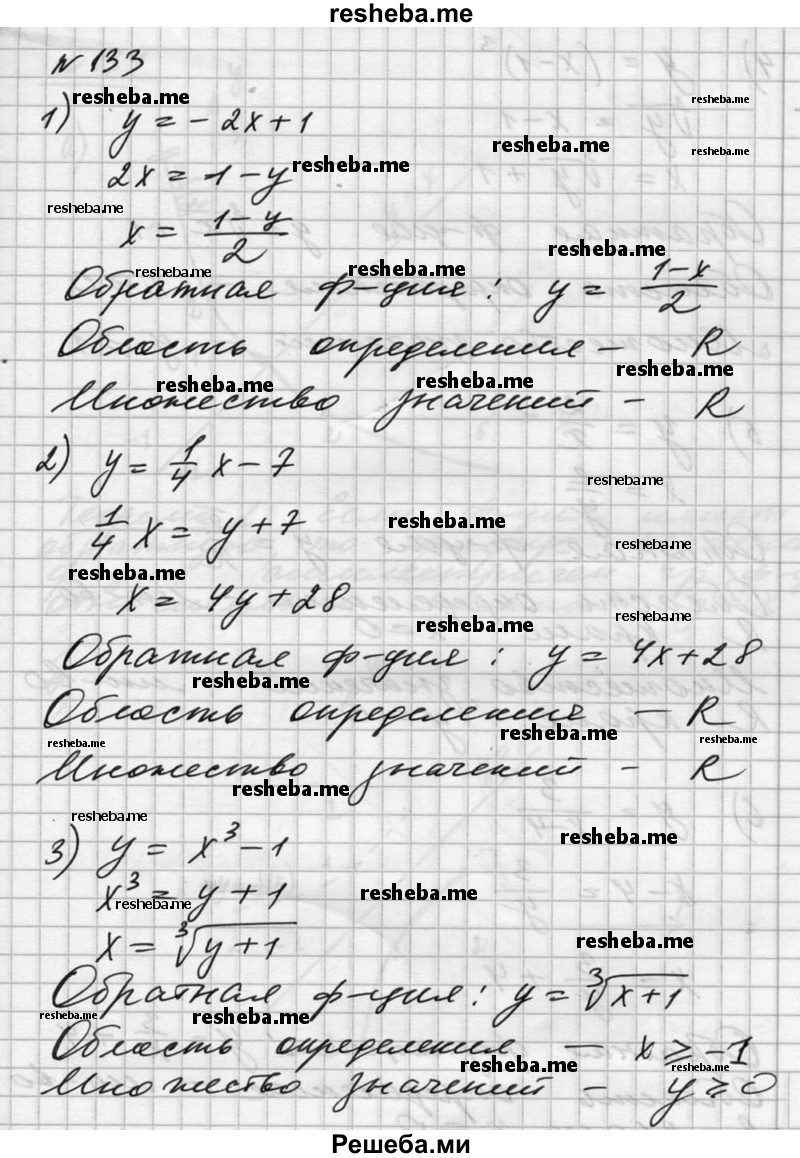 resheba.me
№ 133
resheba.me
1) y = - 2x + 1
resheba.me
resheba.me
resheba.me
2x = 1 - y
resheba.me
resheba.me
x = \frac{1-y}{2}
resheba.me
resheba.me
resheba.me
Обратная ф-ция: y = \frac{1-x}{2}
Область определения – R
resheba.me
resheba.me
resheba.me
Множество значений – R
2) y = \frac{1}{4} x - 7
resheba.me
\frac{1}{4} x = y + 7
resheba.me
resheba.me
resheba.me
x = 4y + 28
resheba.me
resheba.me
Обратная ф-ция: y = 4x + 28
resheba.me
Область определения – R
resheba.me
resheba.me
resheba.me
Множество значений – R
resheba.me
resheba.me
resheba.me
3) y = x³ - 1
x³ = y + 1
resheba.me
resheba.me
x = ∛(y + 1)
resheba.me
Обратная ф-ция: y = ∛(x + 1)
resheba.me
resheba.me
Область определения – x ⩾ -1
resheba.me
resheba.me
Множество значений – y ⩾ 0
Решеба.ми